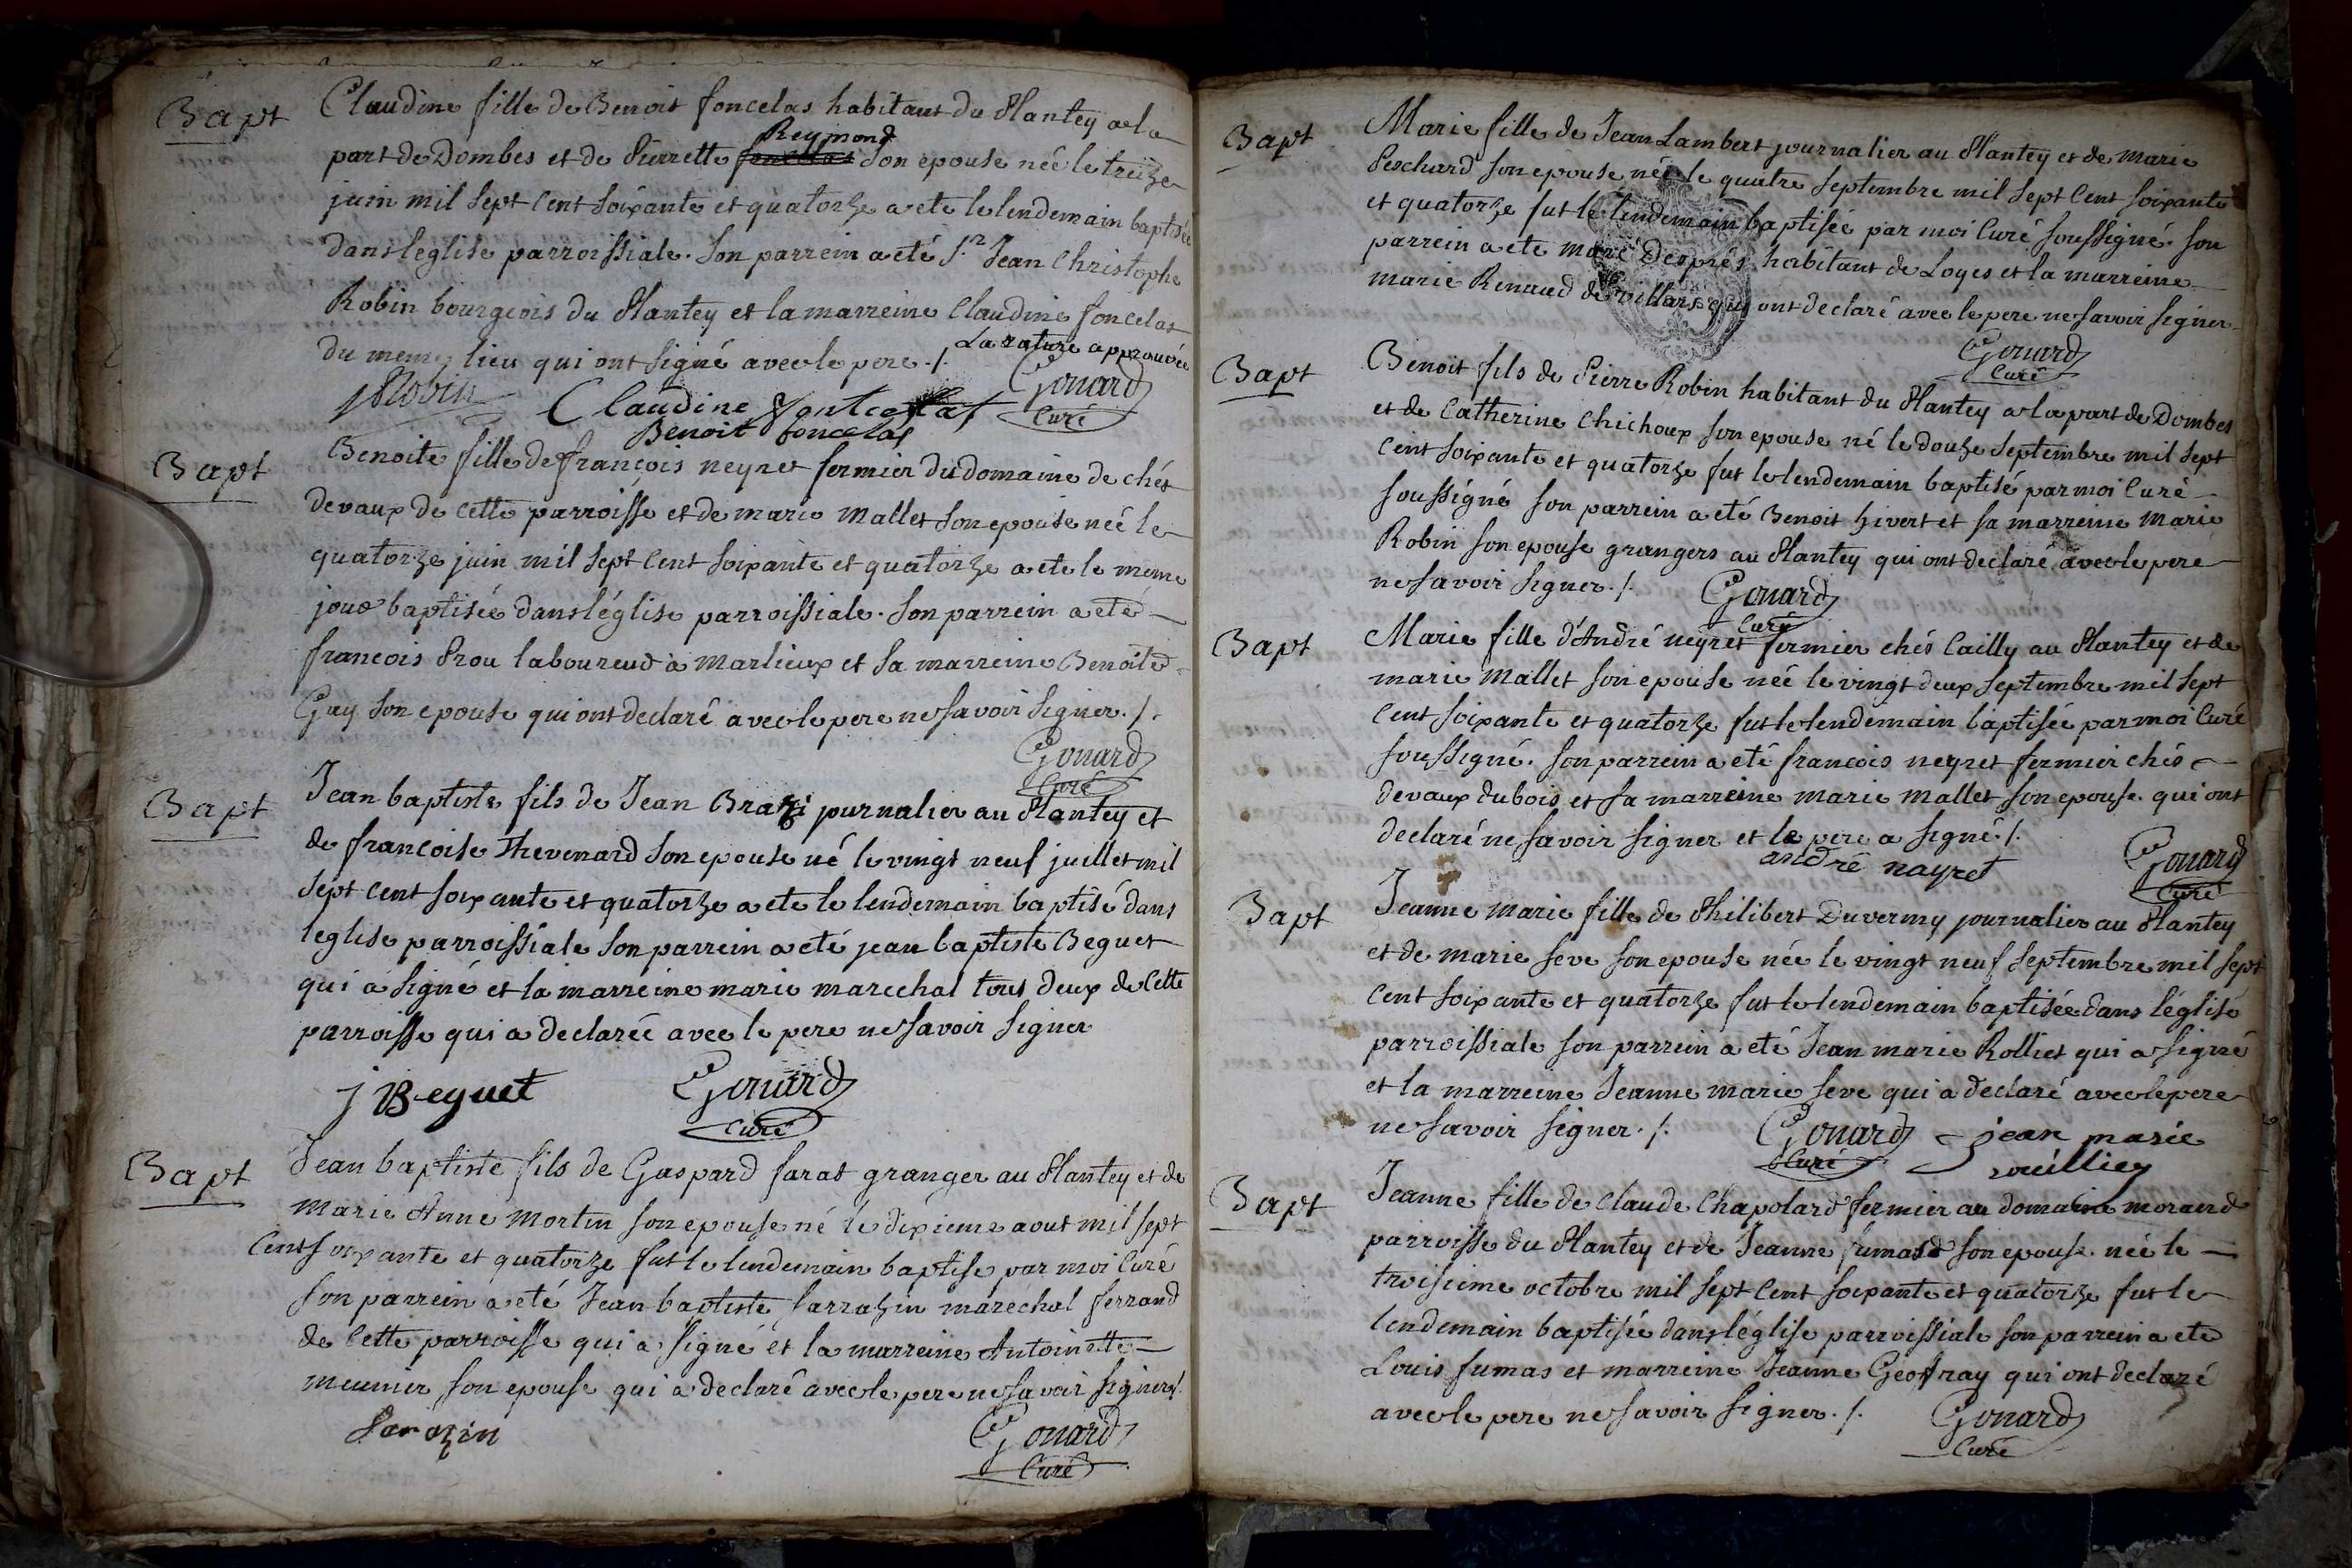 Bapt
Claudine fille de Benoit foncelas habitant du Plantey a la
part de Dombes et de Pierrette Reymond foncelas son epouse née le treize
juin mil sept cent soixante et quatorze a ete le lendemain baptisée
dans leglise parroissiale. son parrein a eté Sr Jean Christophe
Robin bourgeois du Plantey et la marreine Claudine foncelas
du meme lieu qui ont signé avec le pere ./. La rature approuvée
JRobin Claudine Fontcellas Gouard
Benoit foncelas Curé
Bapt
Benoite fille de françois neyret fermier du domaine de chés
devaux de cette parroisse et de marie mallet son epouse née le
quatorze juin mil sept cent soixante et quatorze a ete le meme
jour baptisée dans léglise parroissiale. son parrein a eté
francois Prou laboureur à marlieux et sa marreine Benoite
Guy son epouse qui ont declaré avec le pere ne savoir signer ./.
Gouard
Curé
Bapt
Jean baptiste fils de Jean Brazi journalier au Plantey et
de francoise Thevenard son epouse né le vingt neuf juillet mil
sept cent soixante et quatorze a ete le lendemain baptisé dans
leglise parroissiale son parrein a eté jean baptiste Beguet
qui a signé et la marreine marie marechal tous deux de cette
parroisse qui a declarée avec le pere ne savoir signer
j Beguet Gouard
Curé
Bapt
Jean baptiste fils de Gaspard farat granger au Plantey et de
marie Anne mortin son epouse né le dixieme aout mil sept
cent soixante et quatorze fut le lendemain baptise par moi Curé
son parrein a eté Jean baptiste sarrazin marechal ferrand
de cette parroisse qui a signé et la marreine Antoinette
meunier son epouse qui a declaré avec le pere ne savoir signer ./.
Sarazin Gouard
Curé
Bapt
Marie fille de Jean Lambert journalier au Plantey et de marie
Peschard son epouse née le quatre septembre mil sept cent soixante
et quatorze fut le lendemain baptisée par moi Curé soussigné. son
parrein a ete marc Després habitant de Loyes et la marreine
marie Renaud de villars qui ont declaré avec le pere ne savoir signer
Gouard
Curé
Bapt
Benoit fils de Pierre Robin habitant du Plantey a la part de Dombes
et de Catherine Chichoux son epouse né le douze septembre mil sept
cent soixante et quatorze fut le lendemain baptisé par moi Curé
soussigné son parrein a eté Benoit hivert et sa marreine marie
Robin son epouse grangers au Plantey qui ont declaré avec le pere
ne savoir signer ./. Gouard
Curé
Bapt
Marie fille d'André neyret fermier chés Cailly au Plantey et de
marie mallet son epouse née le vingt deux septembre mil sept
cent soixante et quatorze fut le lendemain baptisée par moi Curé
soussigné. son parrein a eté francois neyret fermier chés
devaux dubois et sa marreine marie mallet son epouse qui ont
declaré ne savoir signer et le pere a signé ./.
andré nayret Gouard
Curé
Bapt
Jeanne marie fille de Philibert Duvermy journalier au Plantey
et de marie seve son epouse née le vingt neuf septembre mil sept
cent soixante et quatorze fut le lendemain baptisée dans léglise
parroissiale son parrein a eté Jean marie Rolliet qui a signé
et la marreine Jeanne marie seve qui a declaré avec le pere
ne savoir signer ./. Gouard jean marie
Curé
Bapt
Jeanne fille de claude Chapolard fermier au domaine morand
parroisse du Plantey et de Jeanne fumas son epouse née le
troisieme octobre mil sept cent soixante et quatorze fut le
lendemain baptisée dans léglise parroissiale son parrein a ete
Louis fumas et marreine Jeanne Geoffray qui ont declaré
avec le pere ne savoir signer ./. Gouard
Curé